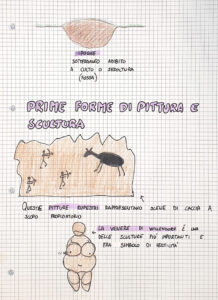 IPOGEO
SOTTERRANEO ADIBITO
A CULTO O SEPOLTURA
(FOSSA)
PRIME FORME DI PITTURA E
SCULTURA
QUESTE PITTURE RUPESTRI RAPPRESENTANO SCENE DI CACCIA A
SCOPO PROPIZIATORIO
LA VENERE DI WILLENDORF È UNA
DELLE SCULTURE PIÙ IMPORTANTI E
ERA SIMBOLO DI FERTILITÀ